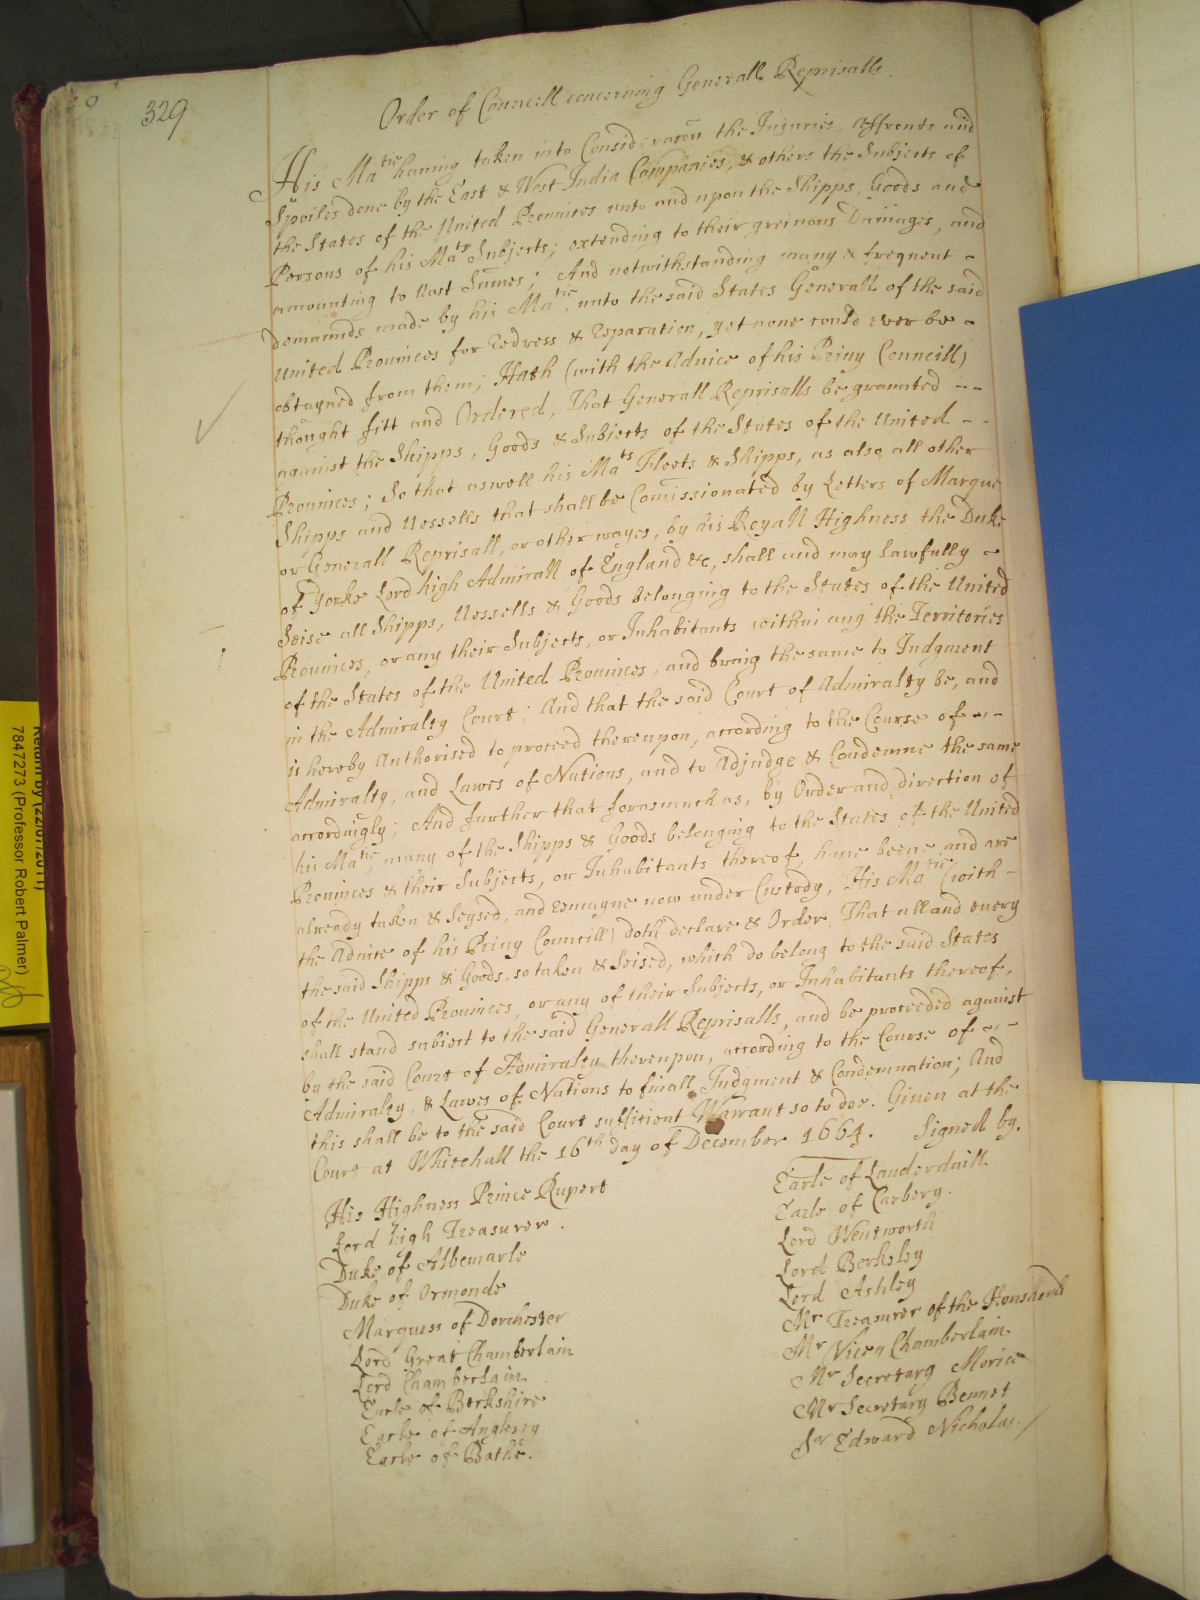 329
Order of Councell concerning Generall Reprisalls.
His Ma.tie hauing taken into Consideracon the Injuries, Affronts and
Spoiles done by the East & West India Companies, & others the Subjects of
the States of the United Prouinces unto and upon the Shipps, Goods and
Persons of his Ma.ts Subjects; extending to their greiuous Damages, and
amounting to vast Sumes; And notwithstanding many & frequent ~
Demaunds made by his Ma.tie, unto the said States Generall of the said
United Prouinces for Redress & Reparation, yet none could ever be ~
obtayned from them; Hath (with the Advice of his Priuy Councill)
thought fitt and Ordered, That Generall Reprisalls be graunted --
against the Shipps, Goods & Subjects of the States of the United --
Prouinces; So that aswell his Ma.ts Fleets & Shipps, as also all other
Shipps and Vessells that shall be Comissionated by Letters of Marque
or Generall Reprisall, or other wayes, by his Royall Highness the Duke
of Yorke Lord high Admirall of England &c, shall and may Lawfully ~
Seise all Shipps, Vessells & Goods belonging to the States of the United
Prouinces, or any their Subjects, or Inhabitants within any the Territories
of the States of the United Prouinces, and bring the same to Judgment
in the Admiralty Court; And that the said Court of Admiralty be, and
is hereby Authorised to proceed thereupon, according to the Course of ~-
Admiralty, and Lawes of Nations, and to Adjudge & Condemne the same
accordingly; And further that forasmuch as, by Order and direction of
his Ma.tie, many of the Shipps & Goods belonging to the States of the United
Prouinces & their Subjects, or Inhabitants thereof, haue beene and are
already taken & Seysed, and remayne now under Custody, His Ma.tie (with -
the Aduice of his Priuy Councill) doth declare & Order, That all and every
the said Shipps & Goods, so taken & Seised, which do belong to the said States
of the United Prouinces, or any of their Subjects, or Inhabitants thereof,
shall stand subject to the said Generall Reprisalls, and be proceeded against
by the said Court of Admiralty thereupon, according to the Course of ~-
Admiralty, & Lawes of Nations to finall Judgment & Condemnation; And
this shall be to the said Court sufficient Warrant so to doe. Giuen at the
Court at Whitehall the 16th day of December 1664. Signed by.
His Highness Prince Rupert
Lord high Treasurer.
Duke of Albemarle
Duke of Ormonde
Marquess of Dorchester
Lord Great Chamberlain
Lord Chamberlain
Earle of Berkshire
Earle of Anglesey
Earle of Bathe.
Earle of Lauderdaill
Earle of Carbery.
Lord Wentworth
Lord Berkeley
Lord Ashley
Mr Treasurer of the Houshould
Mr Vice Chamberlain
Mr Secretary Morice
Mr Secretary Bennet
Sr Edward Nicholas.
Return by (22/07/2011)
7847273 (Professor Robert Palmer)